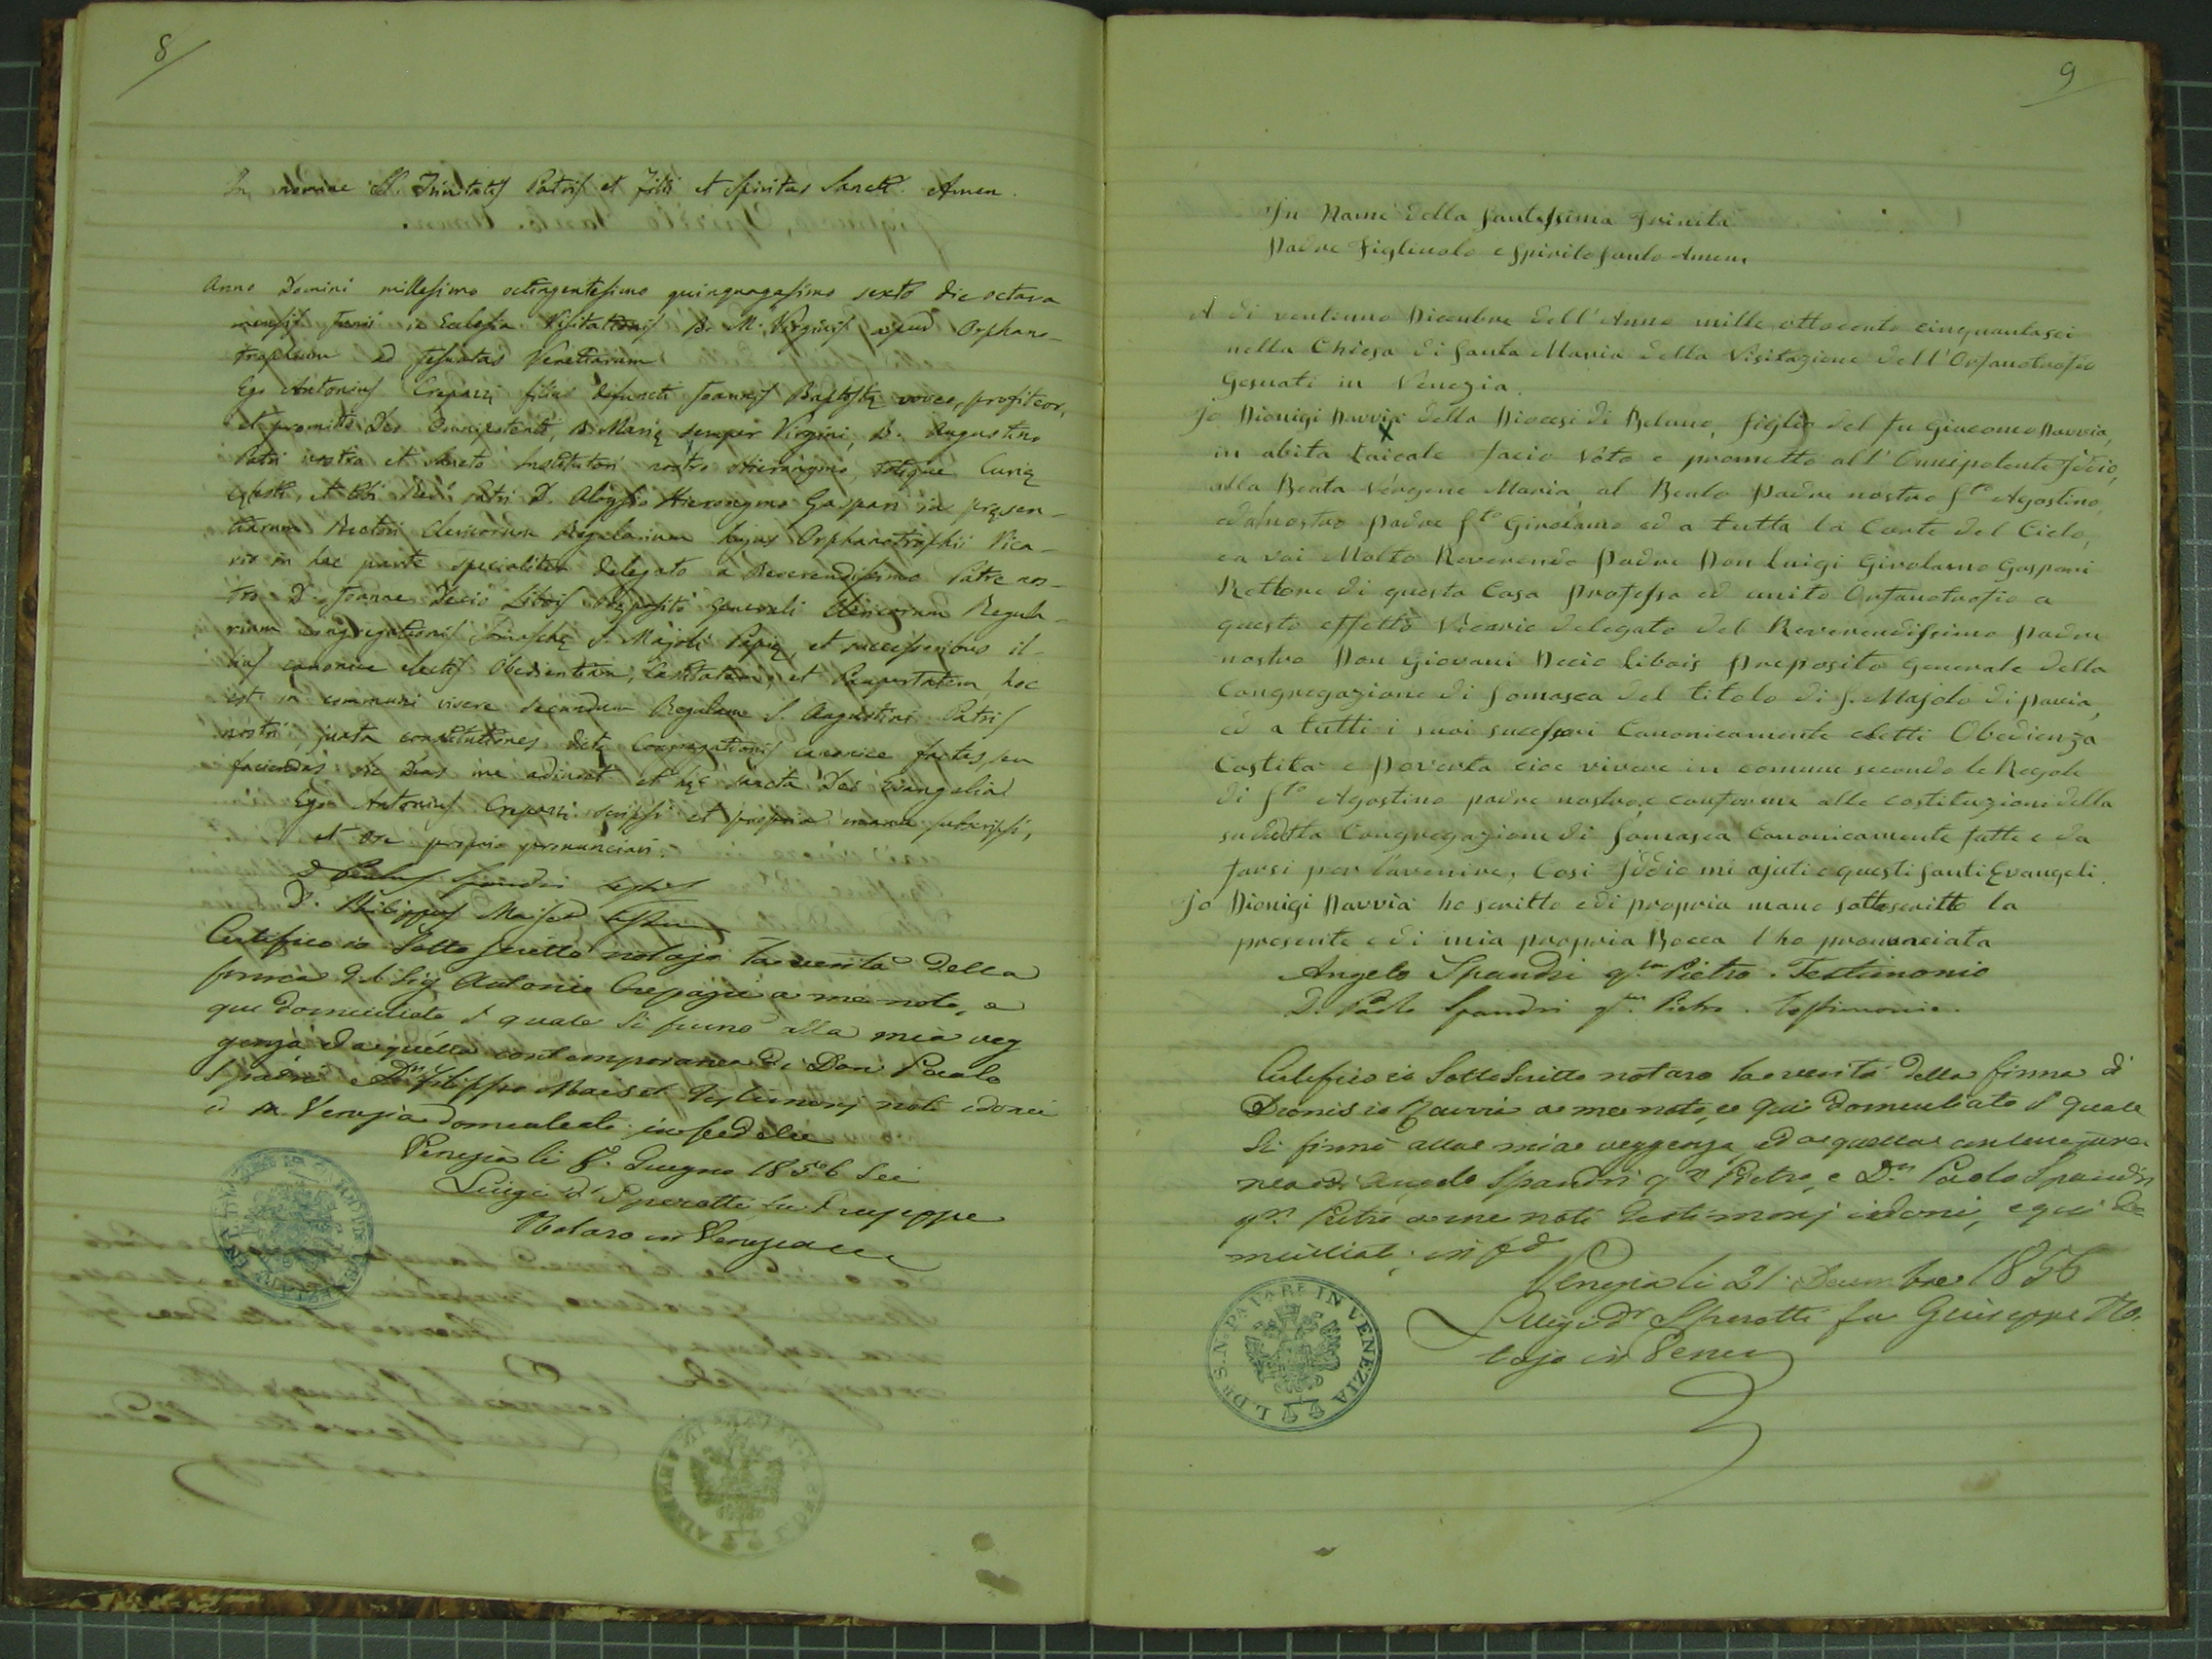 8
In nomine SS. Trinitatis Patris et Filii et Spiritus Sancti. Amen.
Anno Domini millesimo octingentesimo quinquagesimo sexto die octava
mensis Junii in Ecclesia Visitationis B. M. Virginis apud Orphano-
trophium ad Jesuatos Venetiarum
Ego Antonius Crepazzi filius defuncti Joannis Baptistę voveo, profiteor,
et promitto Deo Omnipotenti, B. Marię semper Virgini, B. Augustino
Patri nostro et Sancto Institutori nostro Hieronymo, totique Curię
cęlesti, et tibi Redo Patri D. Aloysio Hieronymo Gaspari in pręsen-
tiarum Rectori Clericorum Regularium hujus Orphanotrophii Vica-
rio in hac parte specialiter delegato a Reverendissimo Patre nos-
tro D. Joanne Decio Libois Pręposito Generali Clericorum Regula-
rium Congregationis Somaschę S. Majoli Papię, et successoribus il-
lius canonice electis Obedientiam, Castitatem, et Paupertatem, hoc
est in communi vivere secundum Regulam S. Augustini Patris
nostri, juxta constitutiones dictę Congregationis canonice factas, seu
faciendas, sic Deus me adiuvet et hęc sancta Dei Evangelia
Ego Antonius Crepazzi scripsi et propria manu subscripsi,
et ore proprio pronunciavi.
D. Paulus Spandri testis
D. Philippus Maiset testis
Certifico io Sotto scritto notajo la verità della
firma del Sig Antonio Crepazzi a me noto, e
qui domiciliato il quale si firmò alla mia veg
genza ed a quella contemporanea di Don Paolo
Spadri e Dn Filippo Maiset Testimonj noti idonei
e in Venezia domiciliati in fede
Venezia li 8. Giugno 1856 sei
Luigi Dr Sperotti fu Giuseppe
Notaro in Venezia
9
In Nome della Santissima Trinita
Padre Figliuolo e Spirito Santo Amen
A di ventuno Dicembre dell'Anno mille ottocento cinquantasei
nella Chiesa di Santa Maria della Visitazione dell'Orfanotrofio
Gesuati in Venezia.
Jo Dionigi Davvià della Diocesi di Beluno, figlio del fu Giacomo Davvia,
in abito Laicale facio voto e prometto all'Onnipotente Jddio,
alla Beata Vergine Maria, al Beato Padre nostro Sto Agostino,
ed al nostro Padre Sto Girolamo ed a tutta la Corte del Cielo,
e a voi Molto Reverendo Padre Don Luigi Girolamo Gaspari
Rettore di questa Casa Professa ed unito Orfanotrofio a
questo effetto Vicario delegato del Reverendissimo Padre
nostro Don Giovani Decio Libois Preposito Generale della
Congregazione di Somasca del titolo di S. Majolo di Pavia,
ed a tutti i suoi sucessori Canonicamente eletti Obedienza
Castita e Poverta cioe vivere in comune secondo le Regole
di Sto Agostino padre nostro, e conforme alle costituzioni della
sudetta Congregazione di Somasca Canonicamente fatte e da
farsi per l'avenire, Cosi Jddio mi ajuti e questi Santi Evangeli.
Jo Dionigi Davvià ho scritto e di propria mano sottoscritto la
presente e di mia propria Bocca l'ho pronunciata
Angelo Spandri qm Pietro. Testimonio
D. Paolo Spandri qm Pietro. Testimonio.
Certifico io Sotto Scritto notaro la verità della firma di
Dionisio Davvià a me noto, e qui domiciliato il quale
si firmò alla mia veggenza, ed a quella contempora
nea di Angelo Spandri qm Pietro, e Dn Paolo Spandri
qm Pietro a me noti Testimonj idonei, e qui do
miciliati, in fd
Venezia li 21. Dicembre 1856
Luigi Dr Sperotti fu Giuseppe No
tajo in Venezia
IN VENEZIA